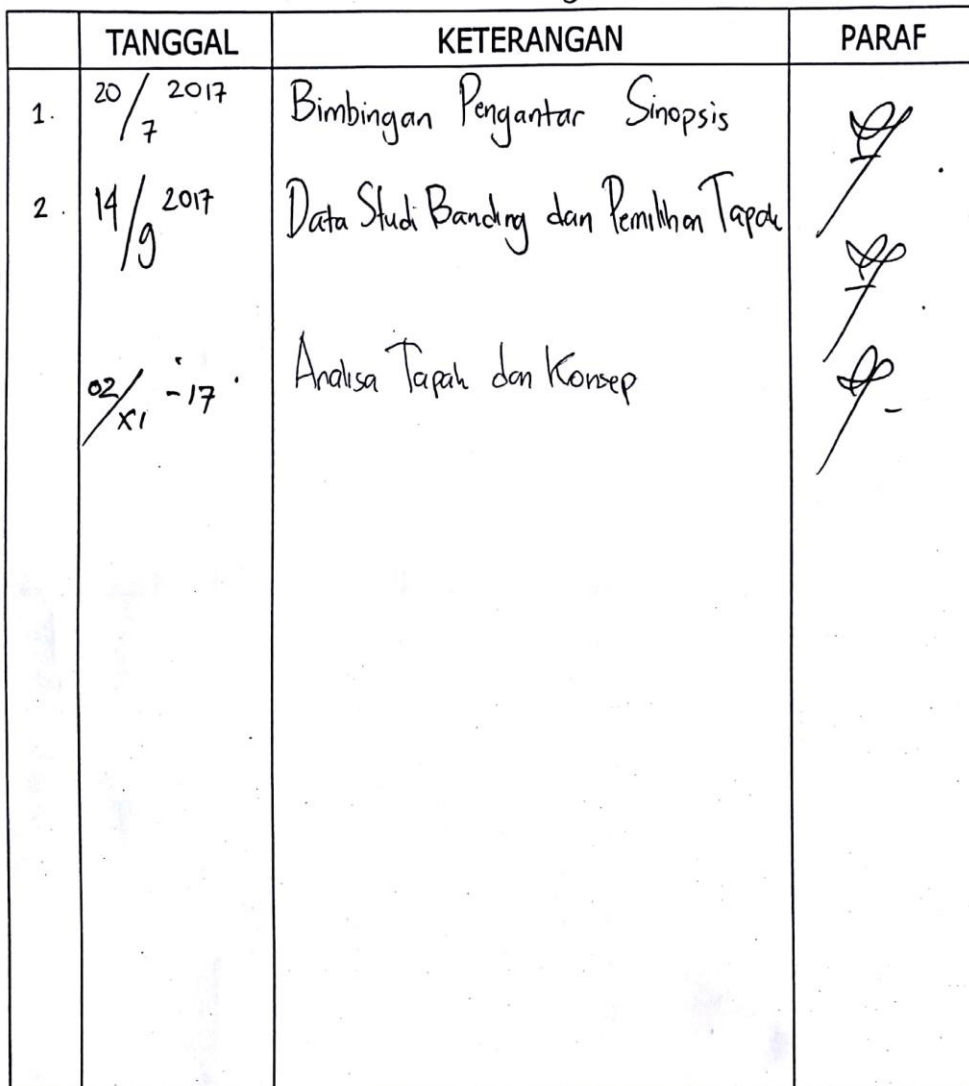 TANGGAL KETERANGAN PARAF
1. 20/7 2017 Bimbingan Pengantar Sinopsis
2. 14/9 2017 Data Studi Banding dan Pemilihan Tapak
02/XI -17 Analisa Tapak dan Konsep